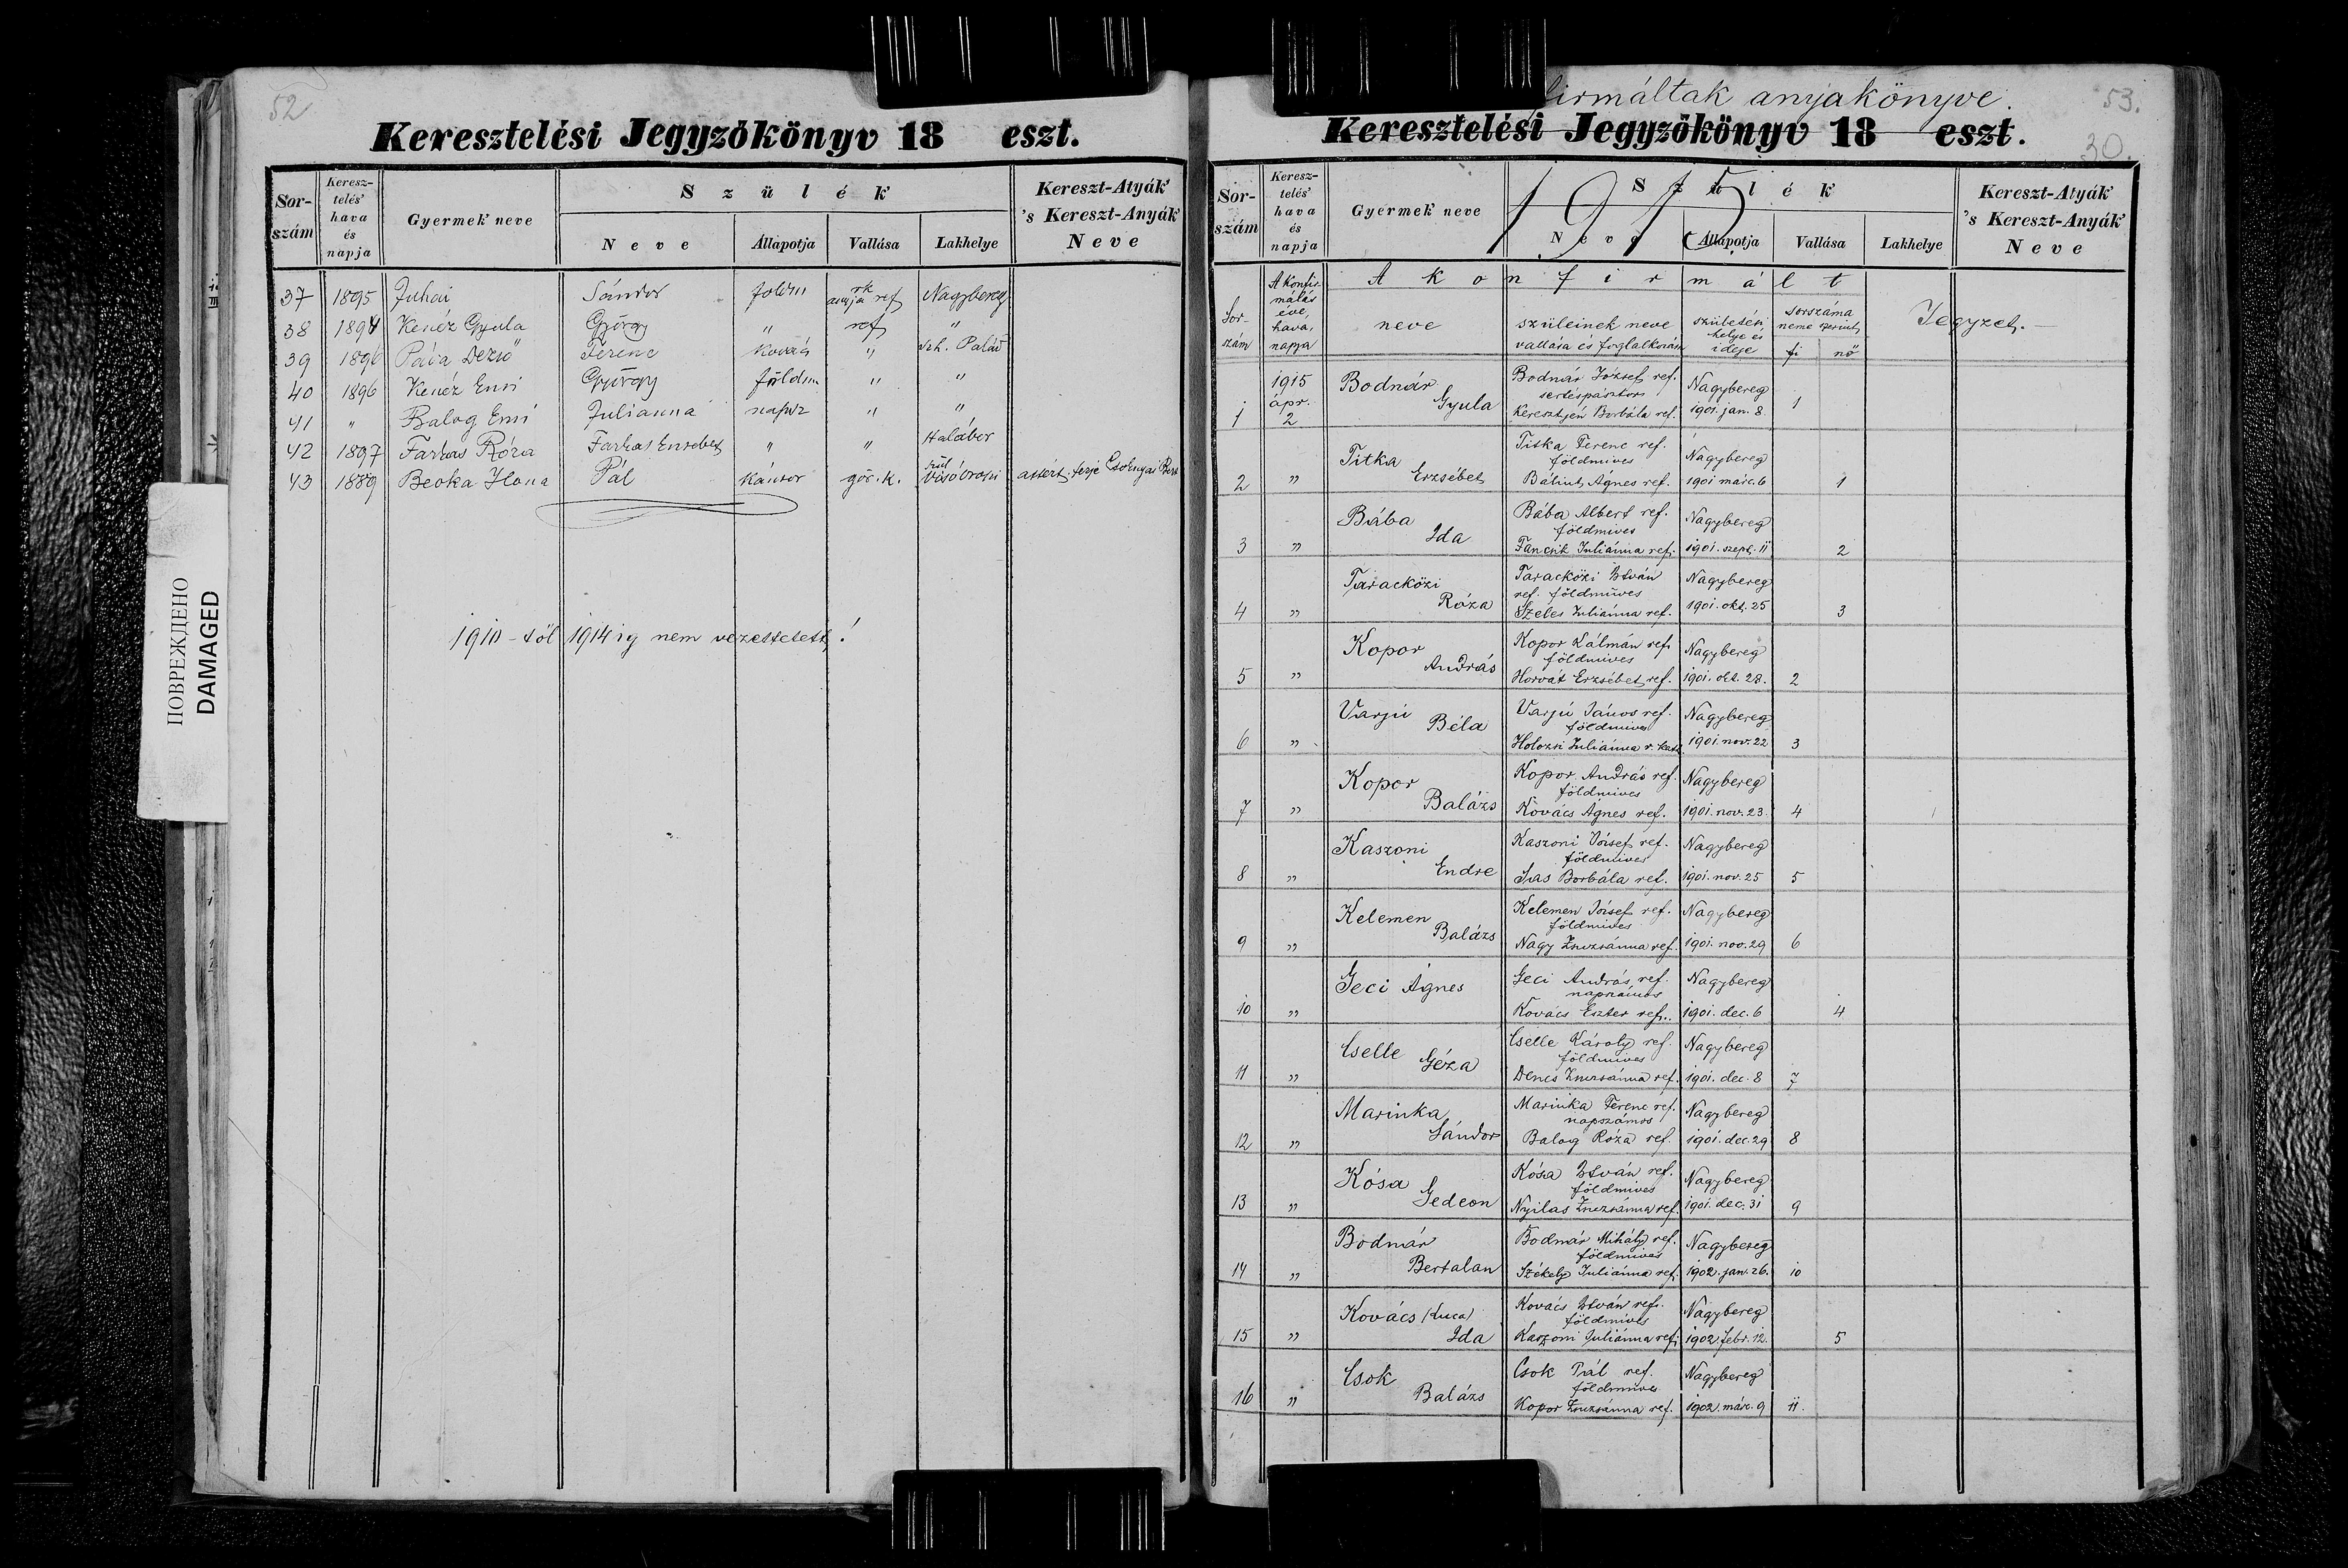 52
Keresztelési Jegyzőkönyv 18 eszt.
Sor-szám
Keresz-telés' hava és napja
Gyermek' neve
Szülék
Neve
Állapotja
Vallása
Lakhelye
Kereszt-Atyák 's Kereszt-Anyák' Neve
37 1895 Juhai Sándor földm rk anyja ref Nagybereg
38 1894 Kenéz Gyula György " ref "
39 1896 Pába Dezső Ferenc kovács " Palád
40 1896 Kenéz Emi György földm " "
41 " Balog Emi Julianna napsz " "
42 1897 Farkas Róza Farkas Erzsébet " " Halábor
43 1889 Beoka Ilona Pál kántor gör. k. szül Visóoroszi áttért férje Csoknyai Bert
1910-től 1914 ig nem vezettetett!
ПОВРЕЖДЕНО
DAMAGED
firmáltak anyakönyve.
53.
Keresztelési Jegyzőkönyv 18 eszt.
30.
Sor-szám
Keresz-telés' hava és napja
Gyermek' neve
Szülék
1915
Neve
Állapotja
Vallása
Lakhelye
Kereszt-Atyák 's Kereszt-Anyák' Neve
A konfirmált
Sor-szám
A konfirmálás éve, hava, napja
neve
szüleinek neve vallása és foglalkozása
születési helye és ideje
sorszáma neme szerint
fi nő
Jegyzet.
1 1915 ápr. 2 Bodnár Gyula Bodnár József ref. sertéspásztor Keresztyén Borbála ref. Nagybereg 1901. jan. 8. 1
2 " Titka Erzsébet Titka Ferenc ref. földmives Bálint Ágnes ref. Nagybereg 1901 márc. 6 1
3 " Bába Ida Bába Albert ref. földmives Fancsik Juliánna ref. Nagybereg 1901. szept. 11 2
4 " Taracközi Róza Taracközi István ref. földmíves Szeles Juliánna ref. Nagybereg 1901. okt. 25 3
5 " Kopor András Kopor Kálmán ref. földmives Horvát Erzsébet ref. Nagybereg 1901. okt. 28. 2
6 " Varjú Béla Varjú János ref. földmives Holozsi Juliánna r. kath. Nagybereg 1901. nov. 22 3
7 " Kopor Balázs Kopor András ref. földmives Kovács Ágnes ref. Nagybereg 1901. nov. 23. 4
8 " Kaszoni Endre Kaszoni József ref. földmives Ivas Borbála ref. Nagybereg 1901. nov. 25 5
9 " Kelemen Balázs Kelemen József ref. földmives Nagy Zsuzsánna ref. Nagybereg 1901. nov. 29 6
10 " Geci Ágnes Geci András ref. napszámos Kovács Eszter ref. Nagybereg 1901. dec. 6 4
11 " Cselle Géza Cselle Károly ref. földmives Dencs Zsuzsánna ref. Nagybereg 1901. dec. 8 7
12 " Marinka Sándor Marinka Ferenc ref. napszámos Balog Róza ref. Nagybereg 1901. dec. 29 8
13 " Kósa Gedeon Kósa István ref. földmives Nyilas Zsuzsánna ref. Nagybereg 1901. dec. 31 9
14 " Bodnár Bertalan Bodnár Mihály ref. földmives Székely Juliánna ref. Nagybereg 1902. jan. 26. 10
15 " Kovács (Kuca) Ida Kovács István ref. földmives Kaszoni Juliánna ref. Nagybereg 1902. febr. 12. 5
16 " Csok Balázs Csok Pál ref. földmives Kopor Zsuzsánna ref. Nagybereg 1902. márc. 9 11.